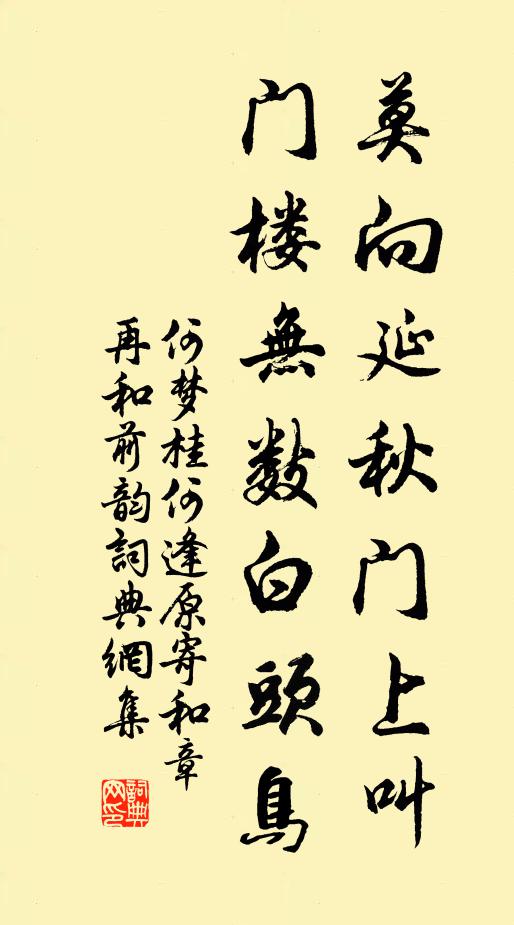 莫向延秋门上叫
门楼無数白頭鳥
何梦桂何逢原寄和章
再和前韵詞典網集
詞典网印